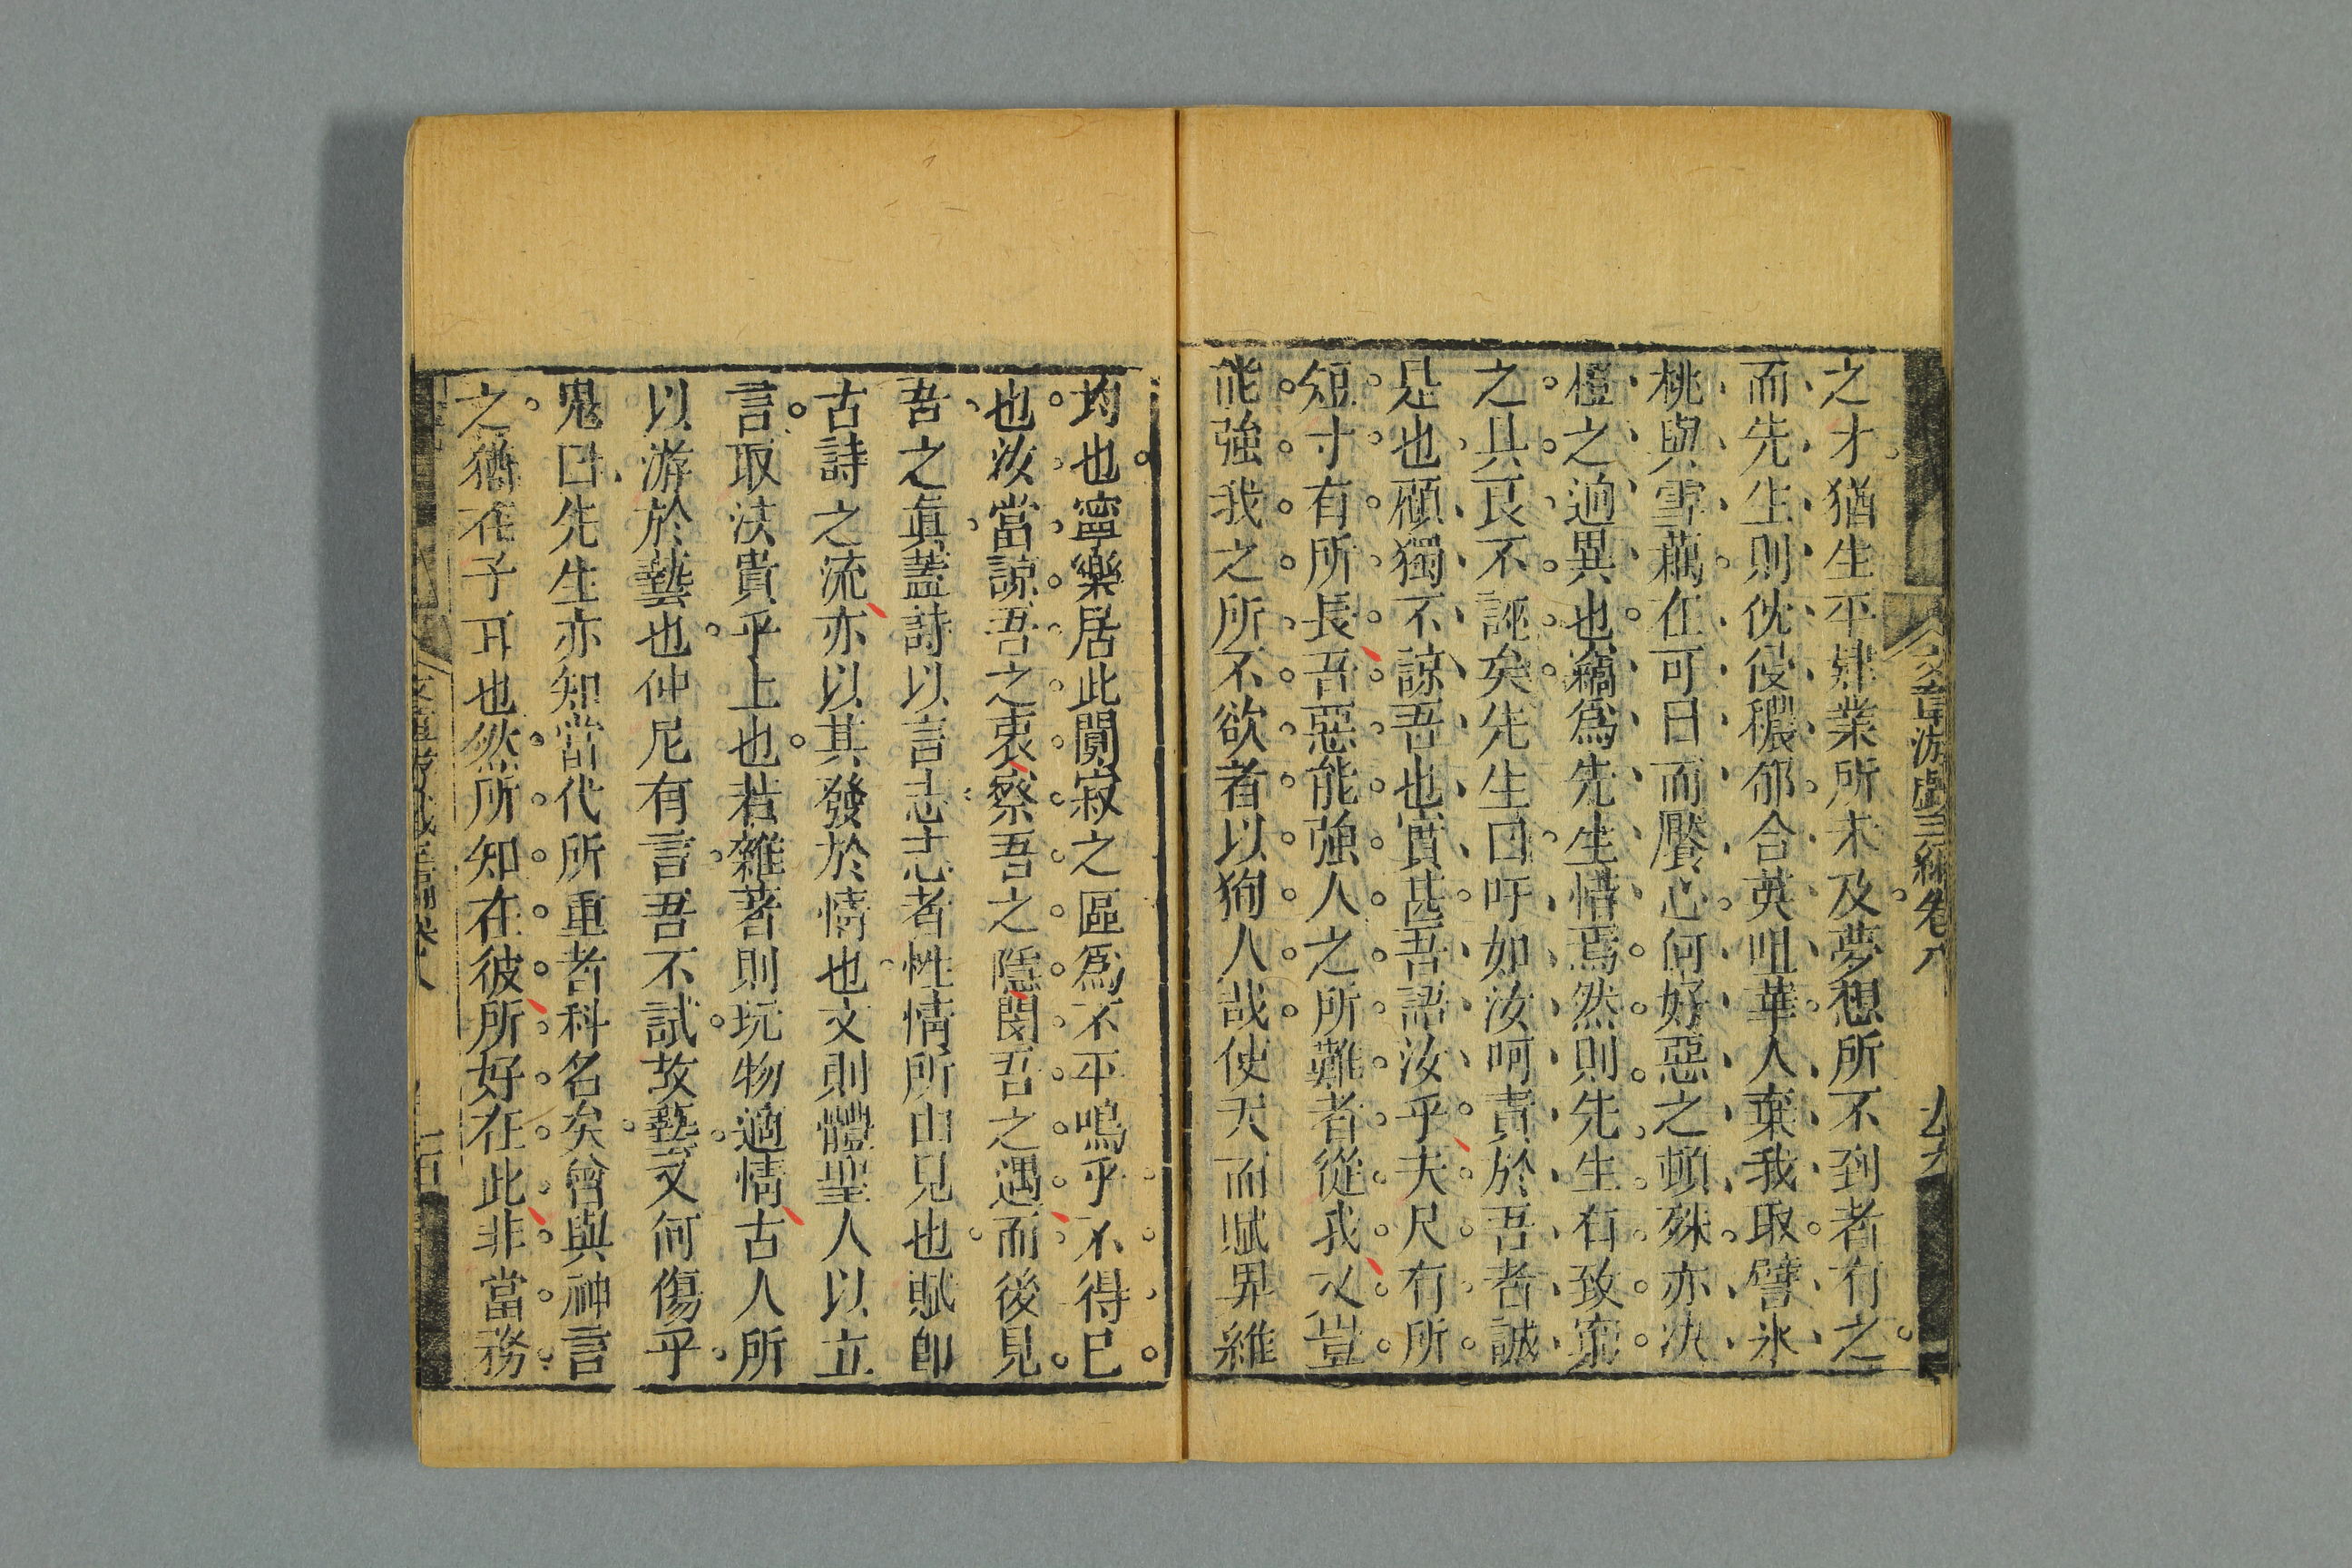 文章游戲三編卷八
之才猶生平肄業所未及夢想所不到者有之
而先生則忱侵穠郁合英咀華人棄我取譬氷
桃與雪藕在可日而饜心何好惡之頓殊亦決
橙之迥異也竊爲先生惜焉然則先生有致窮
之具良不誣矣先生曰吁如汝呵責於吾者誠
是也顧獨不諒吾也實甚吾語汝乎夫尺有所
短寸有所長吾惡能強人之所難者從我又豈
能強我之所不欲者以狥人哉使天而賦畀維
均也寧樂居此闃寂之區爲不平鳴乎不得已
也汝當諒吾之衷察吾之隱閔吾之遇而後見
吾之眞蓋詩以言志志者性情所由見也賦卽
古詩之流亦以其發於情也文則體聖人以立
言取法貴乎上也若雜著則玩物適情古人所
以游於藝也仲尼有言吾不試故藝文何傷乎
鬼曰先生亦知當代所重者科名矣曾與神言
之猶在子耳也然所知在彼所好在此非當務